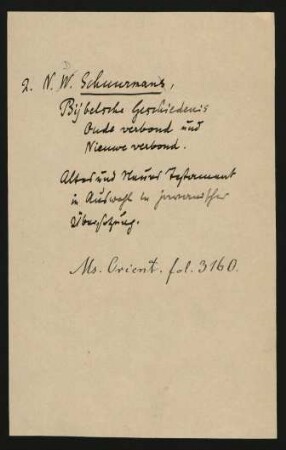 2. N. D. W. Schuurmans,
Bijbelsche Geschiedenis
Oude verbond und
Nieuwe verbond.
Altes und Neues Testament
in Auswahl in javanischer
Übersetzung.
Ms. Orient. fol. 3160.